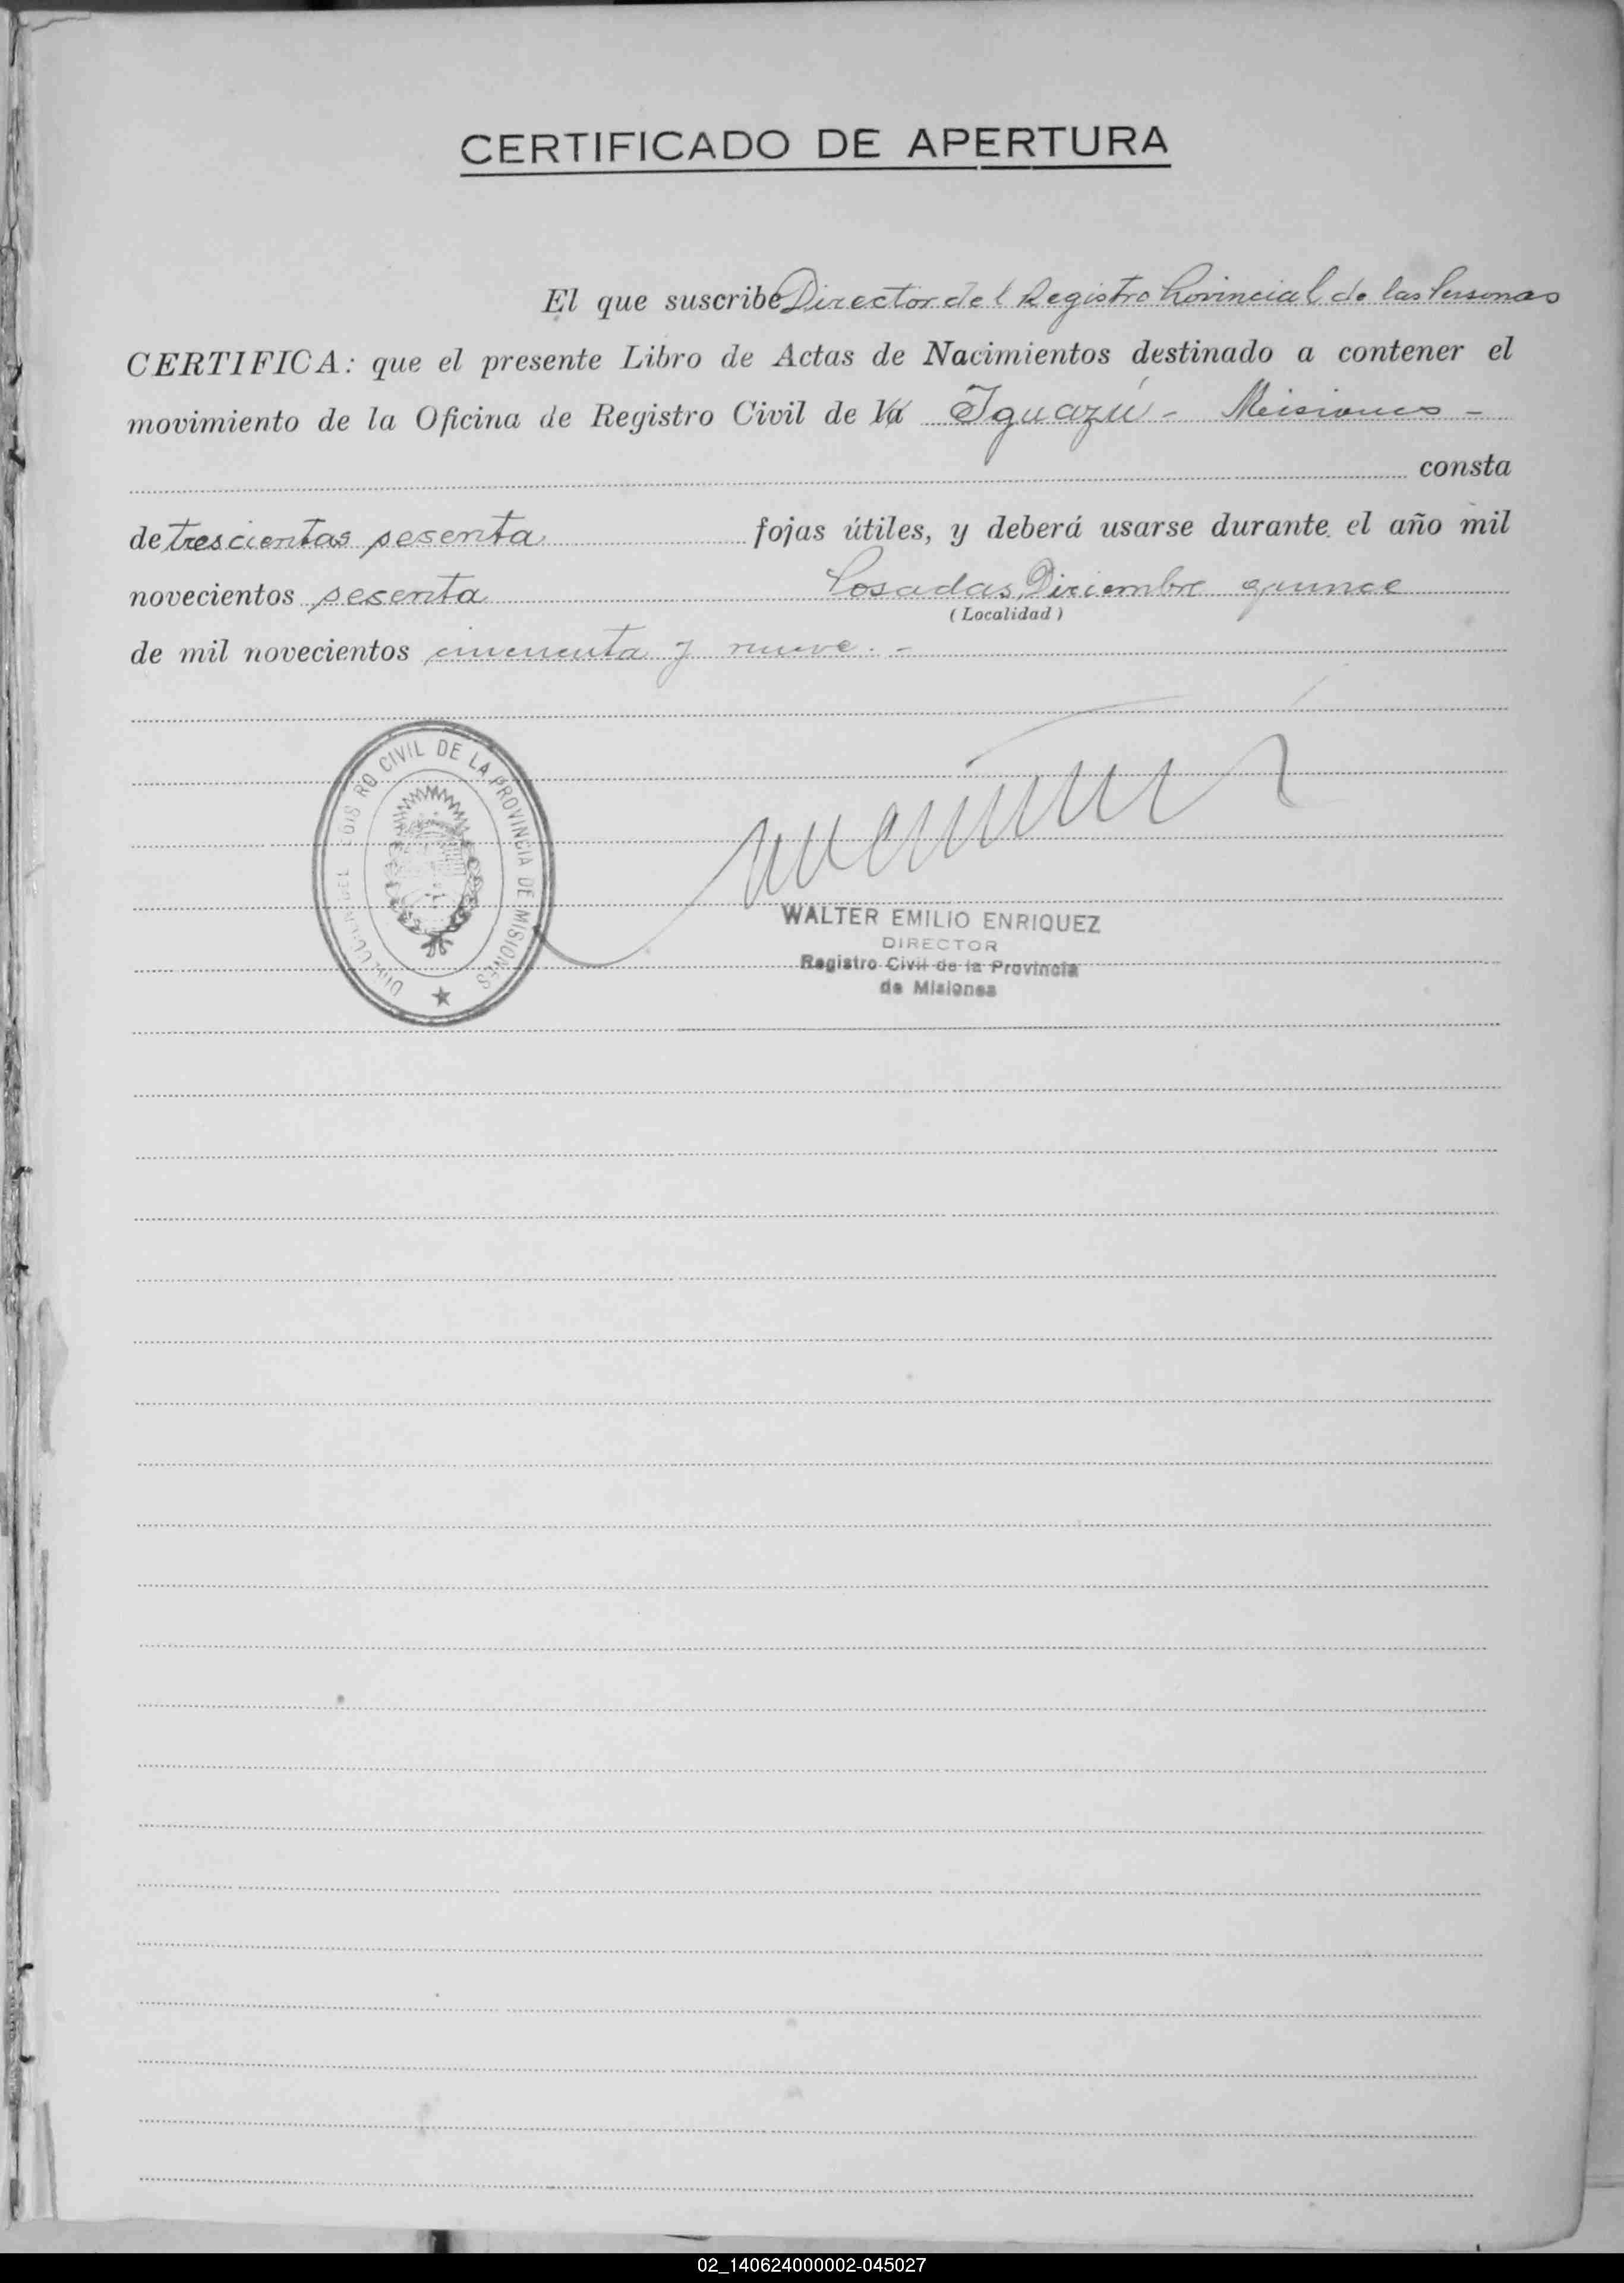 CERTIFICADO DE APERTURA
El que suscribe Director del Registro Provincial de las Personas
CERTIFICA: que el presente Libro de Actas de Nacimientos destinado a contener el
movimiento de la Oficina de Registro Civil de la Iguazú - Misiones -
consta
de trescientas sesenta fojas útiles, y deberá usarse durante el año mil
novecientos sesenta Posadas, Diciembre quince
(Localidad)
de mil novecientos cincuenta y nueve. -
CIVIL DE LA PROVINCIA DE MISIONES
WALTER EMILIO ENRIQUEZ
DIRECTOR
Registro Civil de la Provincia
de Misiones
02_140624000002-045027